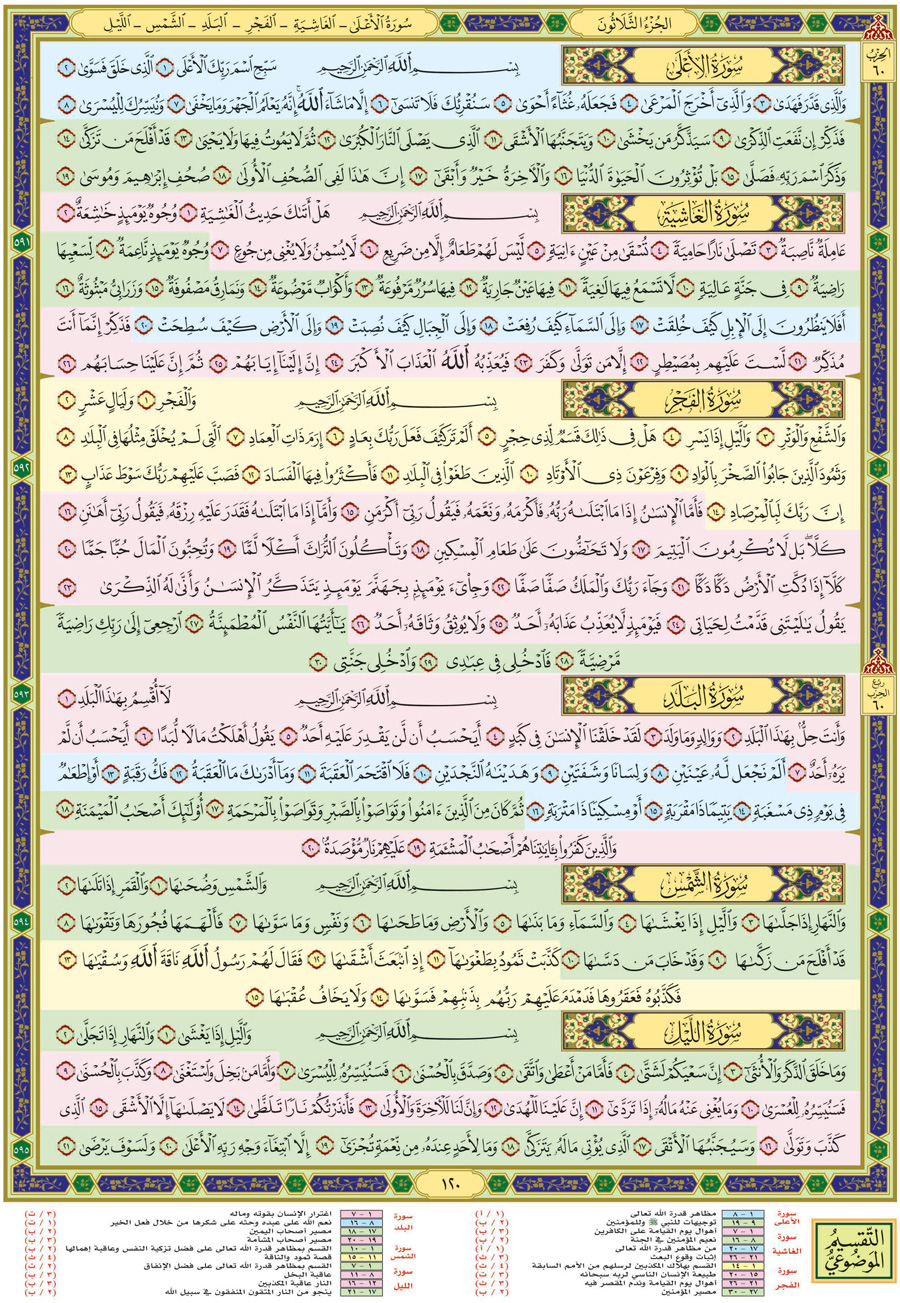 سُورَةُ الأَعْلَىٰ - الغَاشِيَةِ - الفَجْرِ - البَلَدِ - الشَّمْسِ - اللَّيْلِ
الجُزْءُ الثَّلَاثُونَ
الحِزْبُ ٦٠
سُورَةُ الأَعْلَىٰ بِسْمِ ٱللَّهِ ٱلرَّحْمَٰنِ ٱلرَّحِيمِ سَبِّحِ ٱسْمَ رَبِّكَ ٱلْأَعْلَى ١ ٱلَّذِى خَلَقَ فَسَوَّىٰ ٢
وَٱلَّذِى قَدَّرَ فَهَدَىٰ ٣ وَٱلَّذِىٓ أَخْرَجَ ٱلْمَرْعَىٰ ٤ فَجَعَلَهُۥ غُثَآءً أَحْوَىٰ ٥ سَنُقْرِئُكَ فَلَا تَنسَىٰٓ ٦ إِلَّا مَا شَآءَ ٱللَّهُۚ إِنَّهُۥ يَعْلَمُ ٱلْجَهْرَ وَمَا يَخْفَىٰ ٧ وَنُيَسِّرُكَ لِلْيُسْرَىٰ ٨
فَذَكِّرْ إِن نَّفَعَتِ ٱلذِّكْرَىٰ ٩ سَيَذَّكَّرُ مَن يَخْشَىٰ ١٠ وَيَتَجَنَّبُهَا ٱلْأَشْقَى ١١ ٱلَّذِى يَصْلَى ٱلنَّارَ ٱلْكُبْرَىٰ ١٢ ثُمَّ لَا يَمُوتُ فِيهَا وَلَا يَحْيَىٰ ١٣ قَدْ أَفْلَحَ مَن تَزَكَّىٰ ١٤
وَذَكَرَ ٱسْمَ رَبِّهِۦ فَصَلَّىٰ ١٥ بَلْ تُؤْثِرُونَ ٱلْحَيَوٰةَ ٱلدُّنْيَا ١٦ وَٱلْآخِرَةُ خَيْرٌ وَأَبْقَىٰٓ ١٧ إِنَّ هَٰذَا لَفِى ٱلصُّحُفِ ٱلْأُولَىٰ ١٨ صُحُفِ إِبْرَٰهِيمَ وَمُوسَىٰ ١٩
سُورَةُ الغَاشِيَةِ بِسْمِ ٱللَّهِ ٱلرَّحْمَٰنِ ٱلرَّحِيمِ هَلْ أَتَىٰكَ حَدِيثُ ٱلْغَٰشِيَةِ ١ وُجُوهٌ يَوْمَئِذٍ خَٰشِعَةٌ ٢
عَامِلَةٌ نَّاصِبَةٌ ٣ تَصْلَىٰ نَارًا حَامِيَةً ٤ تُسْقَىٰ مِنْ عَيْنٍ ءَانِيَةٍ ٥ لَّيْسَ لَهُمْ طَعَامٌ إِلَّا مِن ضَرِيعٍ ٦ لَّا يُسْمِنُ وَلَا يُغْنِى مِن جُوعٍ ٧ وُجُوهٌ يَوْمَئِذٍ نَّاعِمَةٌ ٨ لِّسَعْيِهَا
رَاضِيَةٌ ٩ فِى جَنَّةٍ عَالِيَةٍ ١٠ لَّا تَسْمَعُ فِيهَا لَٰغِيَةً ١١ فِيهَا عَيْنٌ جَارِيَةٌ ١٢ فِيهَا سُرُرٌ مَّرْفُوعَةٌ ١٣ وَأَكْوَابٌ مَّوْضُوعَةٌ ١٤ وَنَمَارِقُ مَصْفُوفَةٌ ١٥ وَزَرَابِىُّ مَبْثُوثَةٌ ١٦
أَفَلَا يَنظُرُونَ إِلَى ٱلْإِبِلِ كَيْفَ خُلِقَتْ ١٧ وَإِلَى ٱلسَّمَآءِ كَيْفَ رُفِعَتْ ١٨ وَإِلَى ٱلْجِبَالِ كَيْفَ نُصِبَتْ ١٩ وَإِلَى ٱلْأَرْضِ كَيْفَ سُطِحَتْ ٢٠ فَذَكِّرْ إِنَّمَآ أَنتَ
مُذَكِّرٌ ٢١ لَّسْتَ عَلَيْهِم بِمُصَيْطِرٍ ٢٢ إِلَّا مَن تَوَلَّىٰ وَكَفَرَ ٢٣ فَيُعَذِّبُهُ ٱللَّهُ ٱلْعَذَابَ ٱلْأَكْبَرَ ٢٤ إِنَّ إِلَيْنَآ إِيَابَهُمْ ٢٥ ثُمَّ إِنَّ عَلَيْنَا حِسَابَهُم ٢٦
سُورَةُ الفَجْرِ بِسْمِ ٱللَّهِ ٱلرَّحْمَٰنِ ٱلرَّحِيمِ وَٱلْفَجْرِ ١ وَلَيَالٍ عَشْرٍ ٢
وَٱلشَّفْعِ وَٱلْوَتْرِ ٣ وَٱلَّيْلِ إِذَا يَسْرِ ٤ هَلْ فِى ذَٰلِكَ قَسَمٌ لِّذِى حِجْرٍ ٥ أَلَمْ تَرَ كَيْفَ فَعَلَ رَبُّكَ بِعَادٍ ٦ إِرَمَ ذَاتِ ٱلْعِمَادِ ٧ ٱلَّتِى لَمْ يُخْلَقْ مِثْلُهَا فِى ٱلْبِلَٰدِ ٨
وَثَمُودَ ٱلَّذِينَ جَابُوا۟ ٱلصَّخْرَ بِٱلْوَادِ ٩ وَفِرْعَوْنَ ذِى ٱلْأَوْتَادِ ١٠ ٱلَّذِينَ طَغَوْا۟ فِى ٱلْبِلَٰدِ ١١ فَأَكْثَرُوا۟ فِيهَا ٱلْفَسَادَ ١٢ فَصَبَّ عَلَيْهِمْ رَبُّكَ سَوْطَ عَذَابٍ ١٣
إِنَّ رَبَّكَ لَبِٱلْمِرْصَادِ ١٤ فَأَمَّا ٱلْإِنسَٰنُ إِذَا مَا ٱبْتَلَىٰهُ رَبُّهُۥ فَأَكْرَمَهُۥ وَنَعَّمَهُۥ فَيَقُولُ رَبِّىٓ أَكْرَمَنِ ١٥ وَأَمَّآ إِذَا مَا ٱبْتَلَىٰهُ فَقَدَرَ عَلَيْهِ رِزْقَهُۥ فَيَقُولُ رَبِّىٓ أَهَٰنَنِ ١٦
كَلَّاۖ بَل لَّا تُكْرِمُونَ ٱلْيَتِيمَ ١٧ وَلَا تَحَٰٓضُّونَ عَلَىٰ طَعَامِ ٱلْمِسْكِينِ ١٨ وَتَأْكُلُونَ ٱلتُّرَاثَ أَكْلًا لَّمًّا ١٩ وَتُحِبُّونَ ٱلْمَالَ حُبًّا جَمًّا ٢٠
كَلَّآ إِذَا دُكَّتِ ٱلْأَرْضُ دَكًّا دَكًّا ٢١ وَجَآءَ رَبُّكَ وَٱلْمَلَكُ صَفًّا صَفًّا ٢٢ وَجِا۟ىٓءَ يَوْمَئِذٍۭ بِجَهَنَّمَۚ يَوْمَئِذٍ يَتَذَكَّرُ ٱلْإِنسَٰنُ وَأَنَّىٰ لَهُ ٱلذِّكْرَىٰ ٢٣
يَقُولُ يَٰلَيْتَنِى قَدَّمْتُ لِحَيَاتِى ٢٤ فَيَوْمَئِذٍ لَّا يُعَذِّبُ عَذَابَهُۥٓ أَحَدٌ ٢٥ وَلَا يُوثِقُ وَثَاقَهُۥٓ أَحَدٌ ٢٦ يَٰٓأَيَّتُهَا ٱلنَّفْسُ ٱلْمُطْمَئِنَّةُ ٢٧ ٱرْجِعِىٓ إِلَىٰ رَبِّكِ رَاضِيَةً
مَّرْضِيَّةً ٢٨ فَٱدْخُلِى فِى عِبَٰدِى ٢٩ وَٱدْخُلِى جَنَّتِى ٣٠
سُورَةُ البَلَدِ بِسْمِ ٱللَّهِ ٱلرَّحْمَٰنِ ٱلرَّحِيمِ لَآ أُقْسِمُ بِهَٰذَا ٱلْبَلَدِ ١
وَأَنتَ حِلٌّۢ بِهَٰذَا ٱلْبَلَدِ ٢ وَوَالِدٍ وَمَا وَلَدَ ٣ لَقَدْ خَلَقْنَا ٱلْإِنسَٰنَ فِى كَبَدٍ ٤ أَيَحْسَبُ أَن لَّن يَقْدِرَ عَلَيْهِ أَحَدٌ ٥ يَقُولُ أَهْلَكْتُ مَالًا لُّبَدًا ٦ أَيَحْسَبُ أَن لَّمْ
يَرَهُۥٓ أَحَدٌ ٧ أَلَمْ نَجْعَل لَّهُۥ عَيْنَيْنِ ٨ وَلِسَانًا وَشَفَتَيْنِ ٩ وَهَدَيْنَٰهُ ٱلنَّجْدَيْنِ ١٠ فَلَا ٱقْتَحَمَ ٱلْعَقَبَةَ ١١ وَمَآ أَدْرَىٰكَ مَا ٱلْعَقَبَةُ ١٢ فَكُّ رَقَبَةٍ ١٣ أَوْ إِطْعَٰمٌ
فِى يَوْمٍ ذِى مَسْغَبَةٍ ١٤ يَتِيمًا ذَا مَقْرَبَةٍ ١٥ أَوْ مِسْكِينًا ذَا مَتْرَبَةٍ ١٦ ثُمَّ كَانَ مِنَ ٱلَّذِينَ ءَامَنُوا۟ وَتَوَاصَوْا۟ بِٱلصَّبْرِ وَتَوَاصَوْا۟ بِٱلْمَرْحَمَةِ ١٧ أُو۟لَٰٓئِكَ أَصْحَٰبُ ٱلْمَيْمَنَةِ ١٨
وَٱلَّذِينَ كَفَرُوا۟ بِـَٔايَٰتِنَا هُمْ أَصْحَٰبُ ٱلْمَشْـَٔمَةِ ١٩ عَلَيْهِمْ نَارٌ مُّؤْصَدَةٌۢ ٢٠
سُورَةُ الشَّمْسِ بِسْمِ ٱللَّهِ ٱلرَّحْمَٰنِ ٱلرَّحِيمِ وَٱلشَّمْسِ وَضُحَىٰهَا ١ وَٱلْقَمَرِ إِذَا تَلَىٰهَا ٢
وَٱلنَّهَارِ إِذَا جَلَّىٰهَا ٣ وَٱلَّيْلِ إِذَا يَغْشَىٰهَا ٤ وَٱلسَّمَآءِ وَمَا بَنَىٰهَا ٥ وَٱلْأَرْضِ وَمَا طَحَىٰهَا ٦ وَنَفْسٍ وَمَا سَوَّىٰهَا ٧ فَأَلْهَمَهَا فُجُورَهَا وَتَقْوَىٰهَا ٨
قَدْ أَفْلَحَ مَن زَكَّىٰهَا ٩ وَقَدْ خَابَ مَن دَسَّىٰهَا ١٠ كَذَّبَتْ ثَمُودُ بِطَغْوَىٰهَآ ١١ إِذِ ٱنۢبَعَثَ أَشْقَىٰهَا ١٢ فَقَالَ لَهُمْ رَسُولُ ٱللَّهِ نَاقَةَ ٱللَّهِ وَسُقْيَٰهَا ١٣
فَكَذَّبُوهُ فَعَقَرُوهَا فَدَمْدَمَ عَلَيْهِمْ رَبُّهُم بِذَنۢبِهِمْ فَسَوَّىٰهَا ١٤ وَلَا يَخَافُ عُقْبَٰهَا ١٥
سُورَةُ اللَّيْلِ بِسْمِ ٱللَّهِ ٱلرَّحْمَٰنِ ٱلرَّحِيمِ وَٱلَّيْلِ إِذَا يَغْشَىٰ ١ وَٱلنَّهَارِ إِذَا تَجَلَّىٰ ٢
وَمَا خَلَقَ ٱلذَّكَرَ وَٱلْأُنثَىٰٓ ٣ إِنَّ سَعْيَكُمْ لَشَتَّىٰ ٤ فَأَمَّا مَنْ أَعْطَىٰ وَٱتَّقَىٰ ٥ وَصَدَّقَ بِٱلْحُسْنَىٰ ٦ فَسَنُيَسِّرُهُۥ لِلْيُسْرَىٰ ٧ وَأَمَّا مَنۢ بَخِلَ وَٱسْتَغْنَىٰ ٨ وَكَذَّبَ بِٱلْحُسْنَىٰ ٩
فَسَنُيَسِّرُهُۥ لِلْعُسْرَىٰ ١٠ وَمَا يُغْنِى عَنْهُ مَالُهُۥٓ إِذَا تَرَدَّىٰٓ ١١ إِنَّ عَلَيْنَا لَلْهُدَىٰ ١٢ وَإِنَّ لَنَا لَلْآخِرَةَ وَٱلْأُولَىٰ ١٣ فَأَنذَرْتُكُمْ نَارًا تَلَظَّىٰ ١٤ لَا يَصْلَىٰهَآ إِلَّا ٱلْأَشْقَى ١٥ ٱلَّذِى
كَذَّبَ وَتَوَلَّىٰ ١٦ وَسَيُجَنَّبُهَا ٱلْأَتْقَى ١٧ ٱلَّذِى يُؤْتِى مَالَهُۥ يَتَزَكَّىٰ ١٨ وَمَا لِأَحَدٍ عِندَهُۥ مِن نِّعْمَةٍ تُجْزَىٰٓ ١٩ إِلَّا ٱبْتِغَآءَ وَجْهِ رَبِّهِ ٱلْأَعْلَىٰ ٢٠ وَلَسَوْفَ يَرْضَىٰ ٢١
٥٩١
٥٩٢
٥٩٣
٥٩٤
٥٩٥
ربع الحزب ٦٠
١٢٠
التَّقْسِيمُ المَوْضُوعِيُّ
سورة الأعلى
١ - ٨ مظاهر قدرة الله تعالى (١ / أ)
٩ - ١٩ توجيهات للنبي ﷺ وللمؤمنين (٢ / ب)
سورة الغاشية
١ - ٧ أهوال يوم القيامة على الكافرين (٣ / ب)
٨ - ١٦ نعيم المؤمنين في الجنة (٢ / ب)
١٧ - ٢٠ من مظاهر قدرة الله تعالى (١ / أ)
٢١ - ٢٦ إثبات وقوع البعث (٣ / ت)
سورة الفجر
١ - ١٤ القسم بهلاك المكذبين لرسلهم من الأمم السابقة (٤ / ت)
١٥ - ٢٠ طبيعة الإنسان الناسي لربه سبحانه (٣ / ت)
٢١ - ٢٦ أهوال يوم القيامة وندم المقصر فيه (٣ / ب)
٢٧ - ٣٠ مصير المؤمنين (٢ / ب)
سورة البلد
١ - ٧ اغترار الإنسان بقوته وماله (٣ / ت)
٨ - ١٦ نعم الله على عبده وحثه على شكرها من خلال فعل الخير (١ / ت)
١٧ - ١٨ مصير أصحاب اليمين (٢ / ب)
١٩ - ٢٠ مصير أصحاب المشأمة (٣ / ب)
سورة الشمس
١ - ١٠ القسم بمظاهر قدرة الله تعالى على فضل تزكية النفس وعاقبة إهمالها (٢ / ب)
١١ - ١٥ قصة ثمود والناقة (٤ / ث)
سورة الليل
١ - ٧ القسم بمظاهر قدرة الله تعالى على فضل الإنفاق (٢ / ب)
٨ - ١١ عاقبة البخل (٣ / ب)
١٢ - ١٦ النار عاقبة المكذبين (٣ / ب)
١٧ - ٢١ ينجو من النار المتقون المنفقون في سبيل الله (٢ / ب)